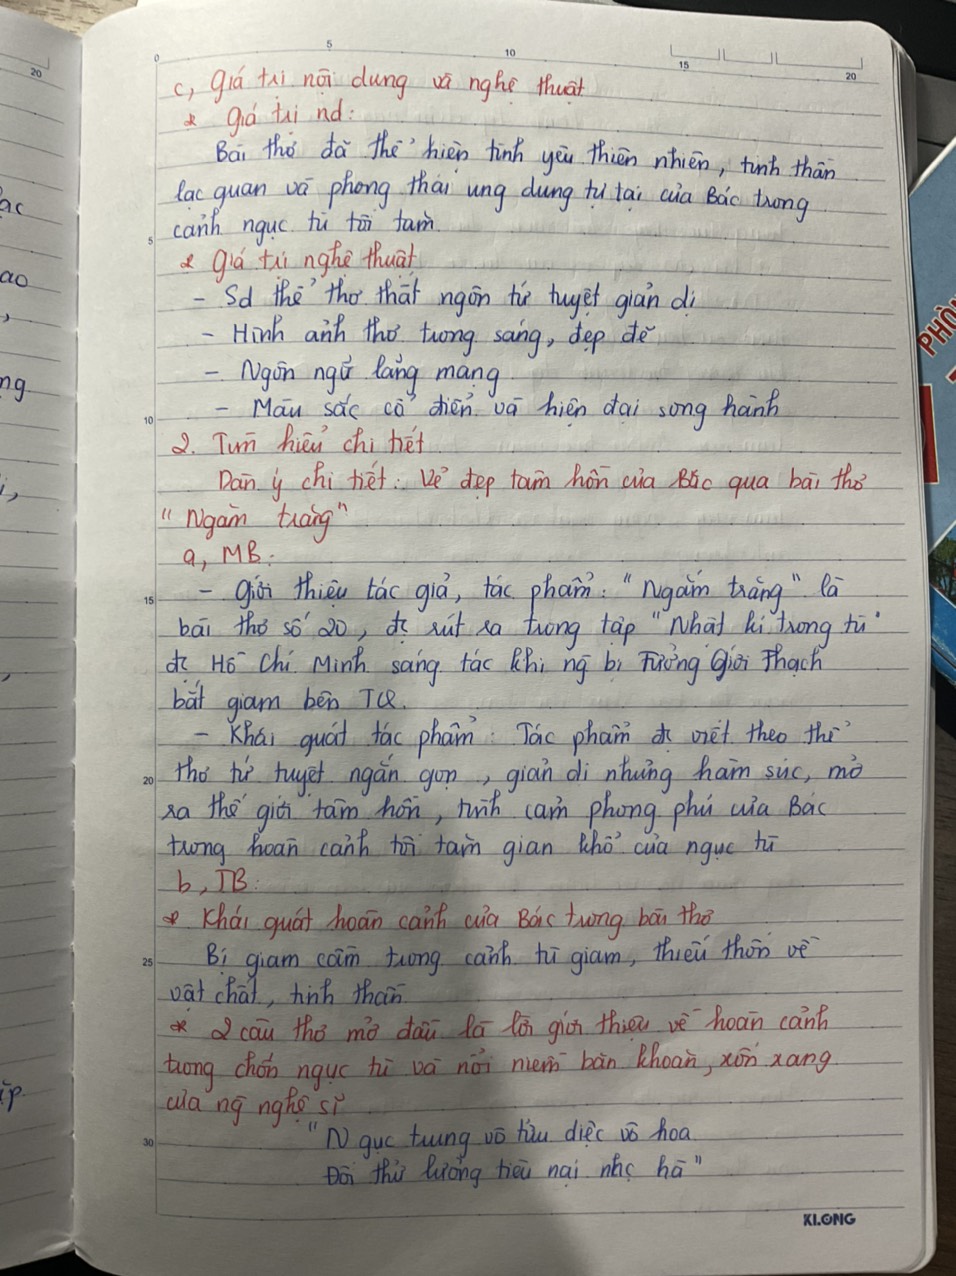 0 5 10 15 20
20
c, giá trị nội dung và nghệ thuật
* giá trị nd:
Bài thơ đã thể hiện tình yêu thiên nhiên, tinh thần
lạc quan và phong thái ung dung tự tại của Bác trong
cảnh ngục tù tối tăm.
5
* giá trị nghệ thuật
- Sd thể thơ thất ngôn tứ tuyệt giản dị
- Hình ảnh thơ trong sáng, đẹp đẽ
- Ngôn ngữ lãng mạng
- Màu sắc cổ điển và hiện đại song hành
10
2. Tìm hiểu chi tiết
Dàn ý chi tiết: Vẻ đẹp tâm hồn của Bác qua bài thơ
"Ngắm trăng"
a, MB:
- Giới thiệu tác giả, tác phẩm: "Ngắm trăng" là
15
bài thơ số 20, đc rút ra trong tập "Nhật kí trong tù"
đc Hồ Chí Minh sáng tác khi ng bị Tưởng Giới Thạch
bắt giam bên TQ.
- Khái quát tác phẩm: Tác phẩm đc viết theo thể
thơ tứ tuyệt ngắn gọn, giản dị nhưng hàm súc, mở
20
ra thế giới tâm hồn, tình cảm phong phú của Bác
trong hoàn cảnh tối tăm gian khổ của ngục tù
b, TB:
* Khái quát hoàn cảnh của Bác trong bài thơ
Bị giam cầm trong cảnh tù giam, thiếu thốn về
25
vật chất, tinh thần
* 2 câu thơ mở đầu là lời giới thiệu về hoàn cảnh
trong chốn ngục tù và nỗi niềm băn khoăn, xốn xang
của ng nghệ sĩ
"Ngục trung vô tửu diệc vô hoa
30
Đối thử lương tiêu nại nhc hà"
KLONG
ac
ao
ng
PHÒN